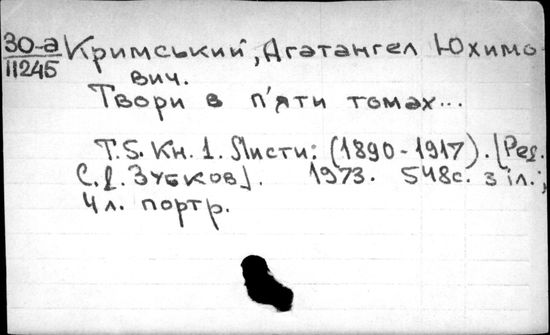 30-а
11245
Кримський, Агатангел Юхимо
вич.
Твори в п'яти томах...
Т.5. Кн. 1. Листи: (1890-1917). [Ред.
С.Д. Зубков]. 1973. 548с. з іл.;
4 л. портр.